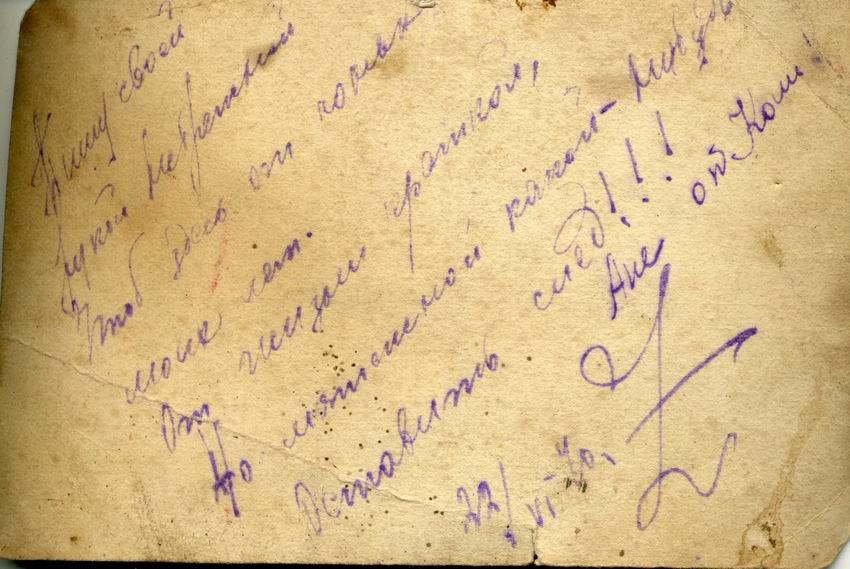 Пишу своей
рукой небрежной
Чтоб здесь от
моих лет.
От жизни краткой,
Но мятежной какой-нибудь
Оставить след!!!
Ане от Коли!
22/VI 40.